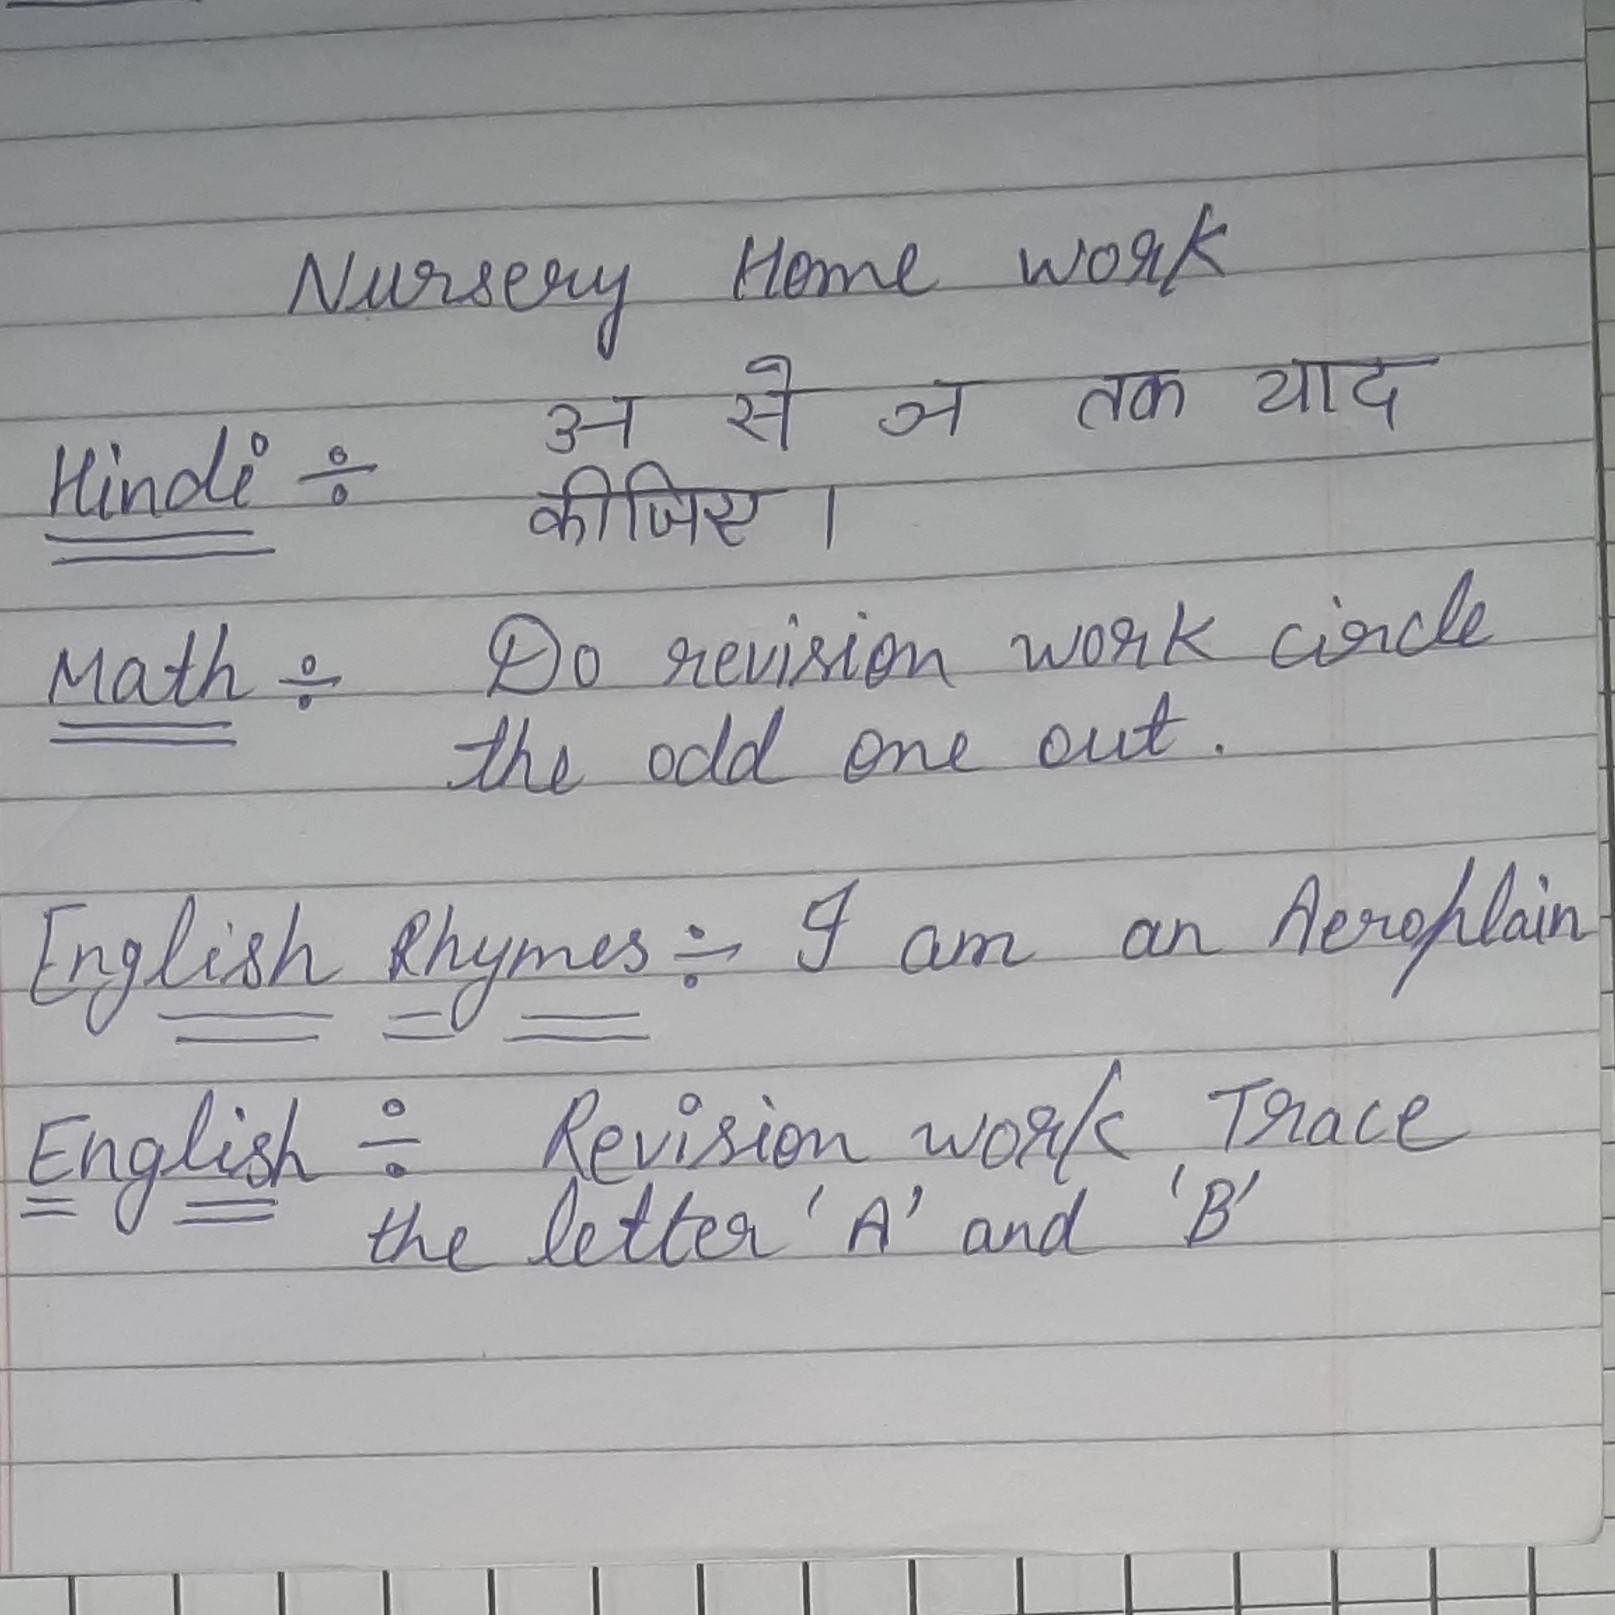 Nursery Home work
Hindi ÷ अ से ञ तक याद
कीजिए।
Math ÷ Do revision work circle
the odd one out.
English Rhymes ÷ I am an Aeroplain
English ÷ Revision work Trace
the letter 'A' and 'B'